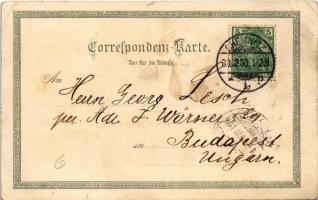 Correspondenz-Karte.
Nur für die Adresse.
5
An Herrn Georg Lesch
per. Adr. J. Wörner
in Budapest,
Ungarn.
6